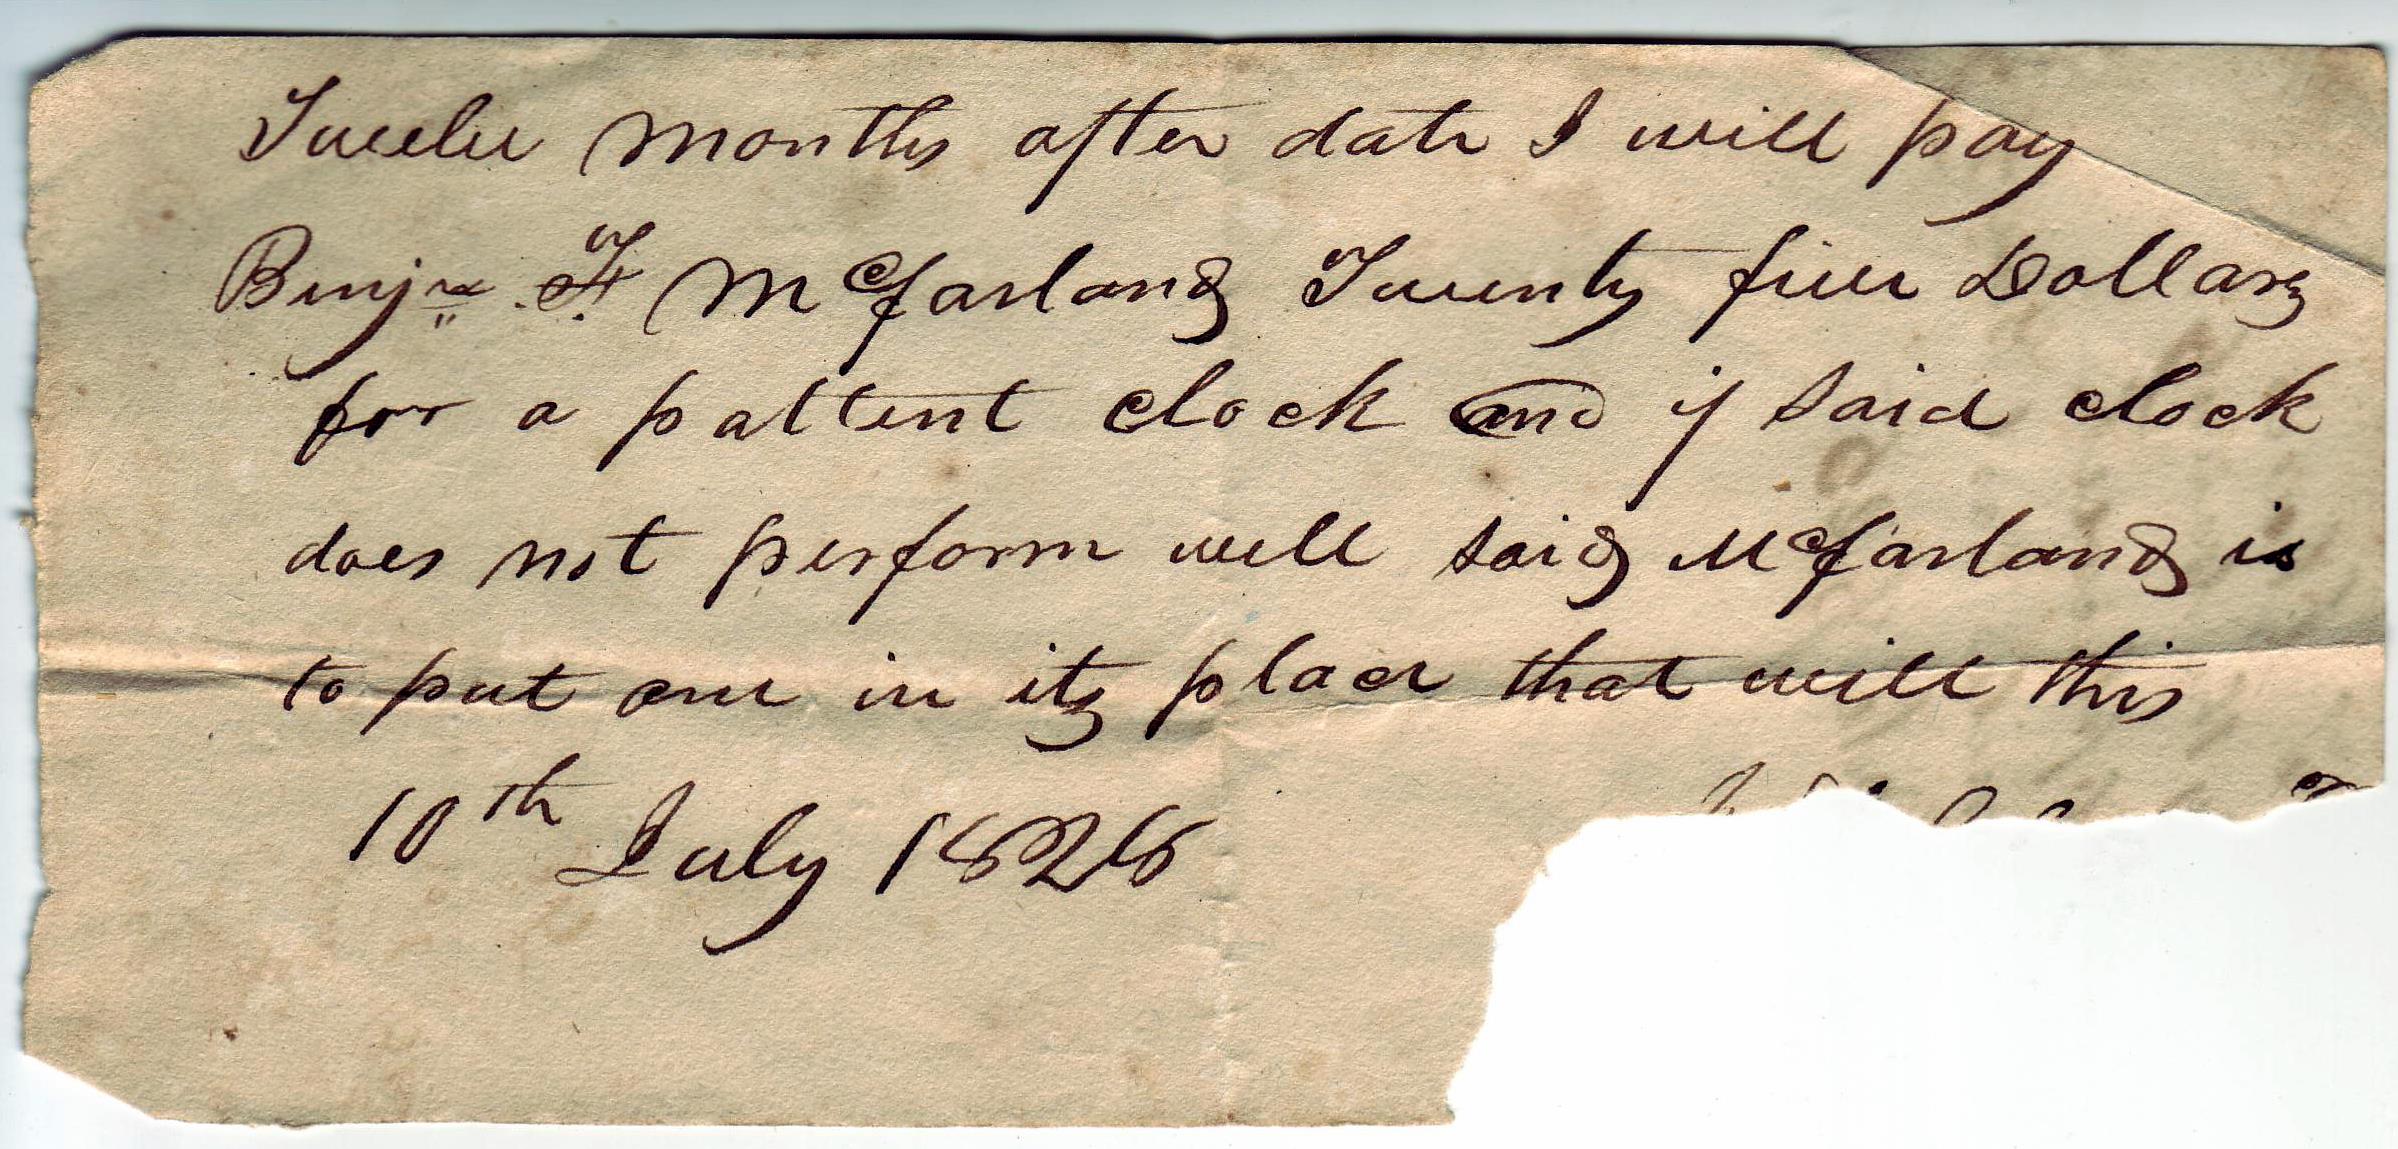 Twelve months after date I will pay
Benjn F McFarland Twenty five Dollars
for a pattent clock and if said clock
does not perform well said McFarland is
to put one in its place that will this
10th July 1826